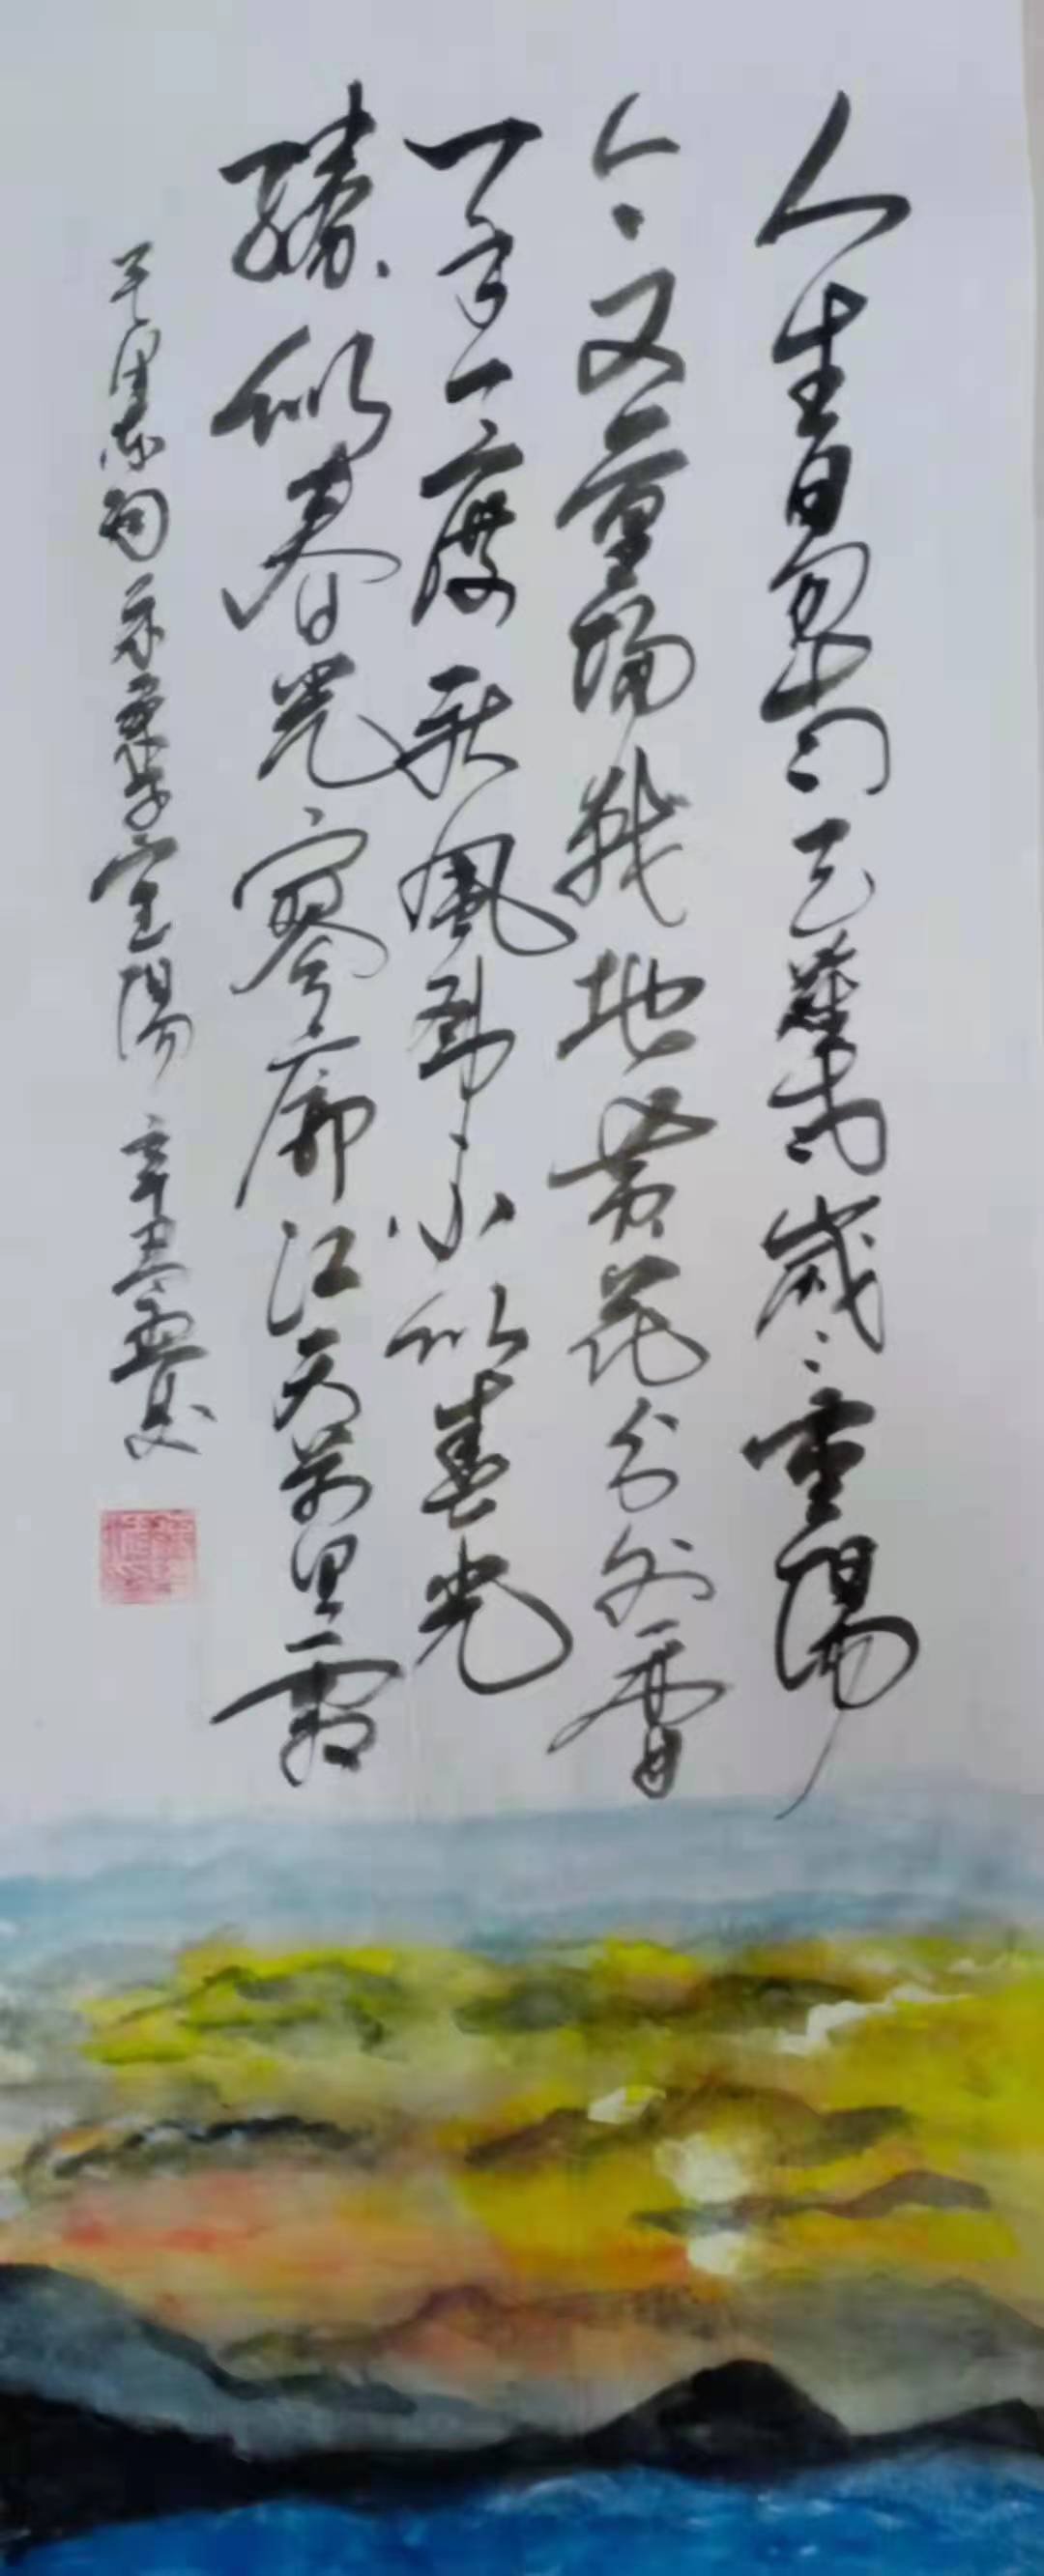 人生易老天難老歲々重陽
今又重陽戰地黄花分外香
一年一度秋風勁不似春光
勝似春光寥廓江天萬里霜
毛澤東詞采桑子重陽 辛丑